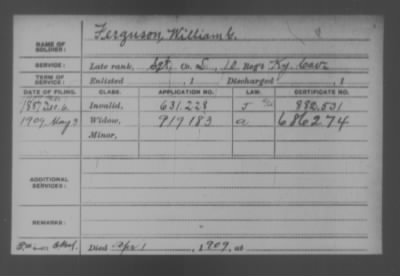 NAME OF SOLDIER: Ferguson, William C.
SERVICE: Late rank, Sgt, Co. L, 10 Reg't Ky. Cav.
TERM OF SERVICE: Enlisted , 1 Discharged , 1
DATE OF FILING. CLASS. APPLICATION NO. LAW. CERTIFICATE NO.
1887 Dec. 6 Invalid, 631.228 J 882.531
1909 May 3 Widow, 917183 a 686274
Minor,
ADDITIONAL SERVICES:
REMARKS:
Died Apr 1, 1909, at